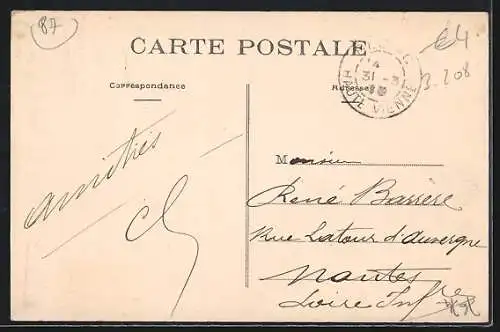 87
CARTE POSTALE
€4
B. 208
31 - 3
HAUTE VIENNE
Correspondance
Adresse
Amitiés
Monsieur
René Barrère
Rue Latour d'Auvergne
Nantes
Loire Infre